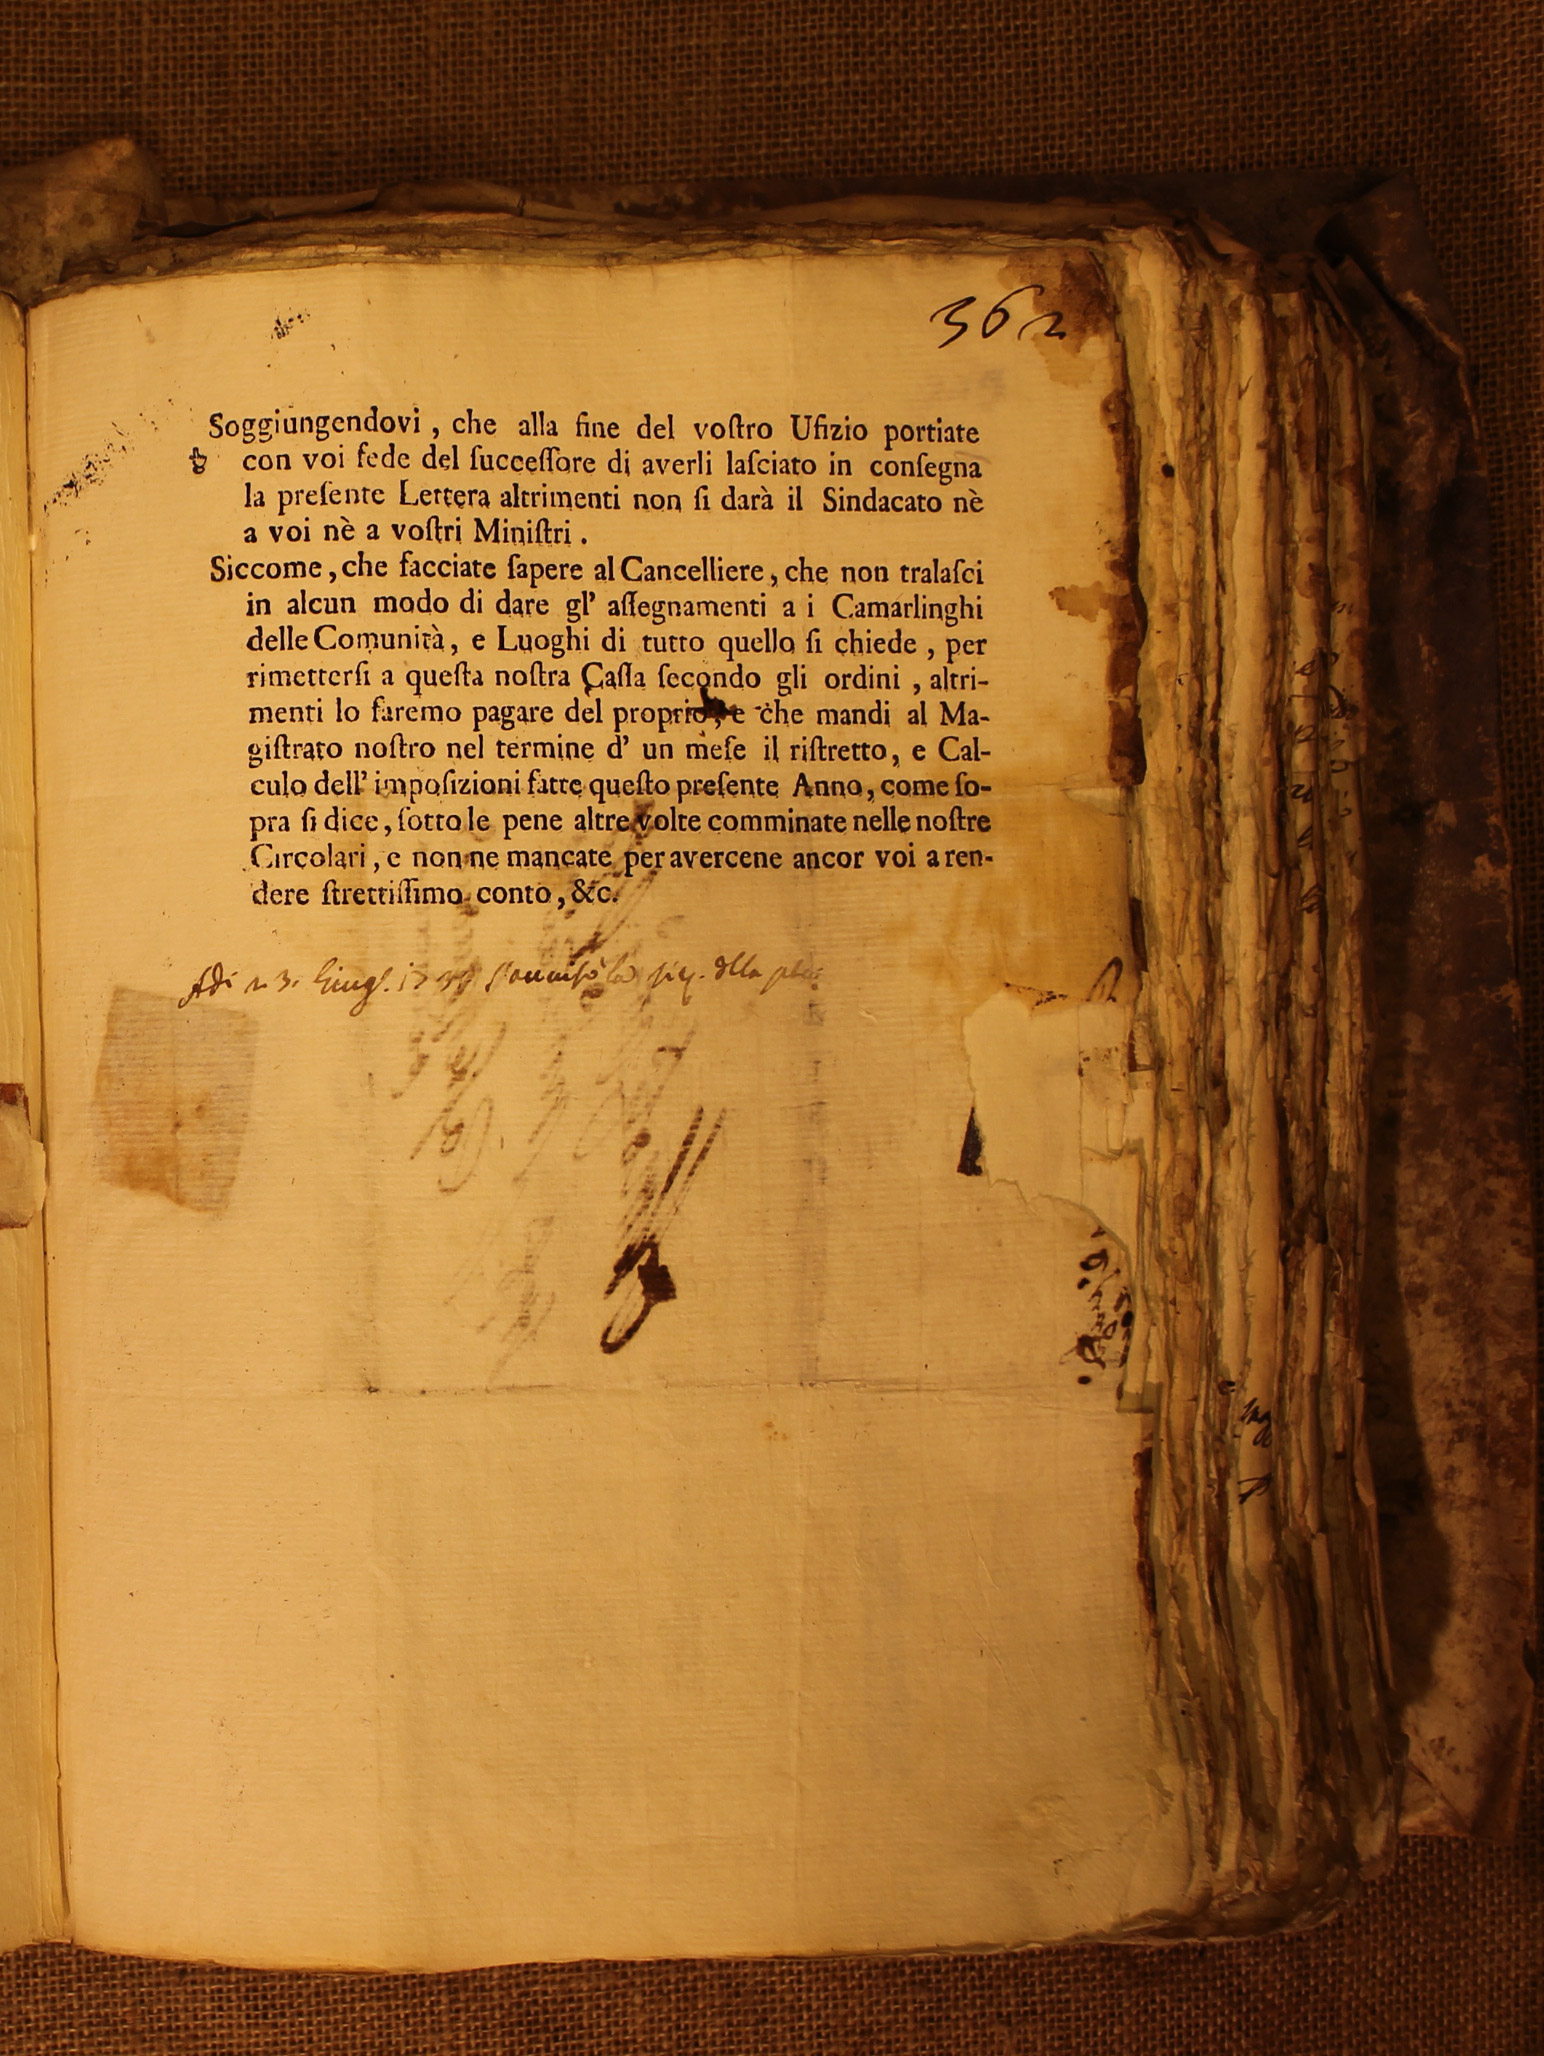 362
Soggiungendovi, che alla fine del voſtro Ufizio portiate
con voi fede del ſucceſſore di averli laſciato in conſegna
la preſente Lettera altrimenti non ſi darà il Sindacato nè
a voi nè a voſtri Miniſtri.
Siccome, che facciate ſapere al Cancelliere, che non tralaſci
in alcun modo di dare gl' aſſegnamenti a i Camarlinghi
delle Comunità, e Luoghi di tutto quello ſi chiede, per
rimetterſi a queſta noſtra Caſſa ſecondo gli ordini, altri-
menti lo faremo pagare del proprio, e che mandi al Ma-
giſtrato noſtro nel termine d' un meſe il riſtretto, e Cal-
culo dell' impoſizioni fatte queſto preſente Anno, come ſo-
pra ſi dice, ſotto le pene altre volte comminate nelle noſtre
Circolari, e non ne mancate per avercene ancor voi a ren-
dere ſtrettiſſimo conto, &c.
Adi 23. Giug.